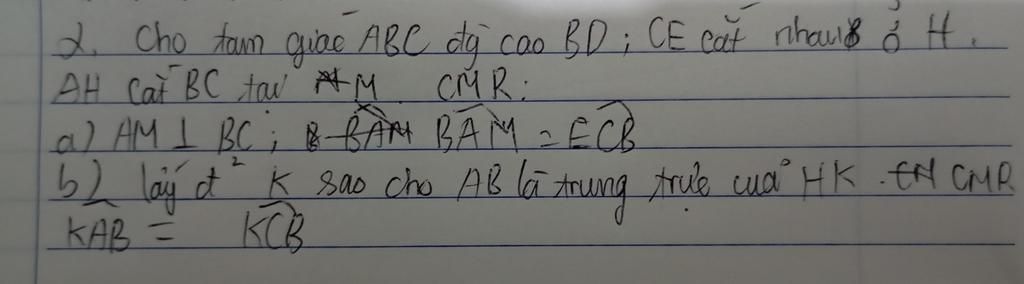 2. Cho tam giác ABC đg cao BD; CE cắt nhau ở H.
AH cắt BC tại M. CMR:
a) AM ⊥ BC; BAM = ECB
b) lấy đ² K sao cho AB là trung trực của HK. CMR
KAB = KCB